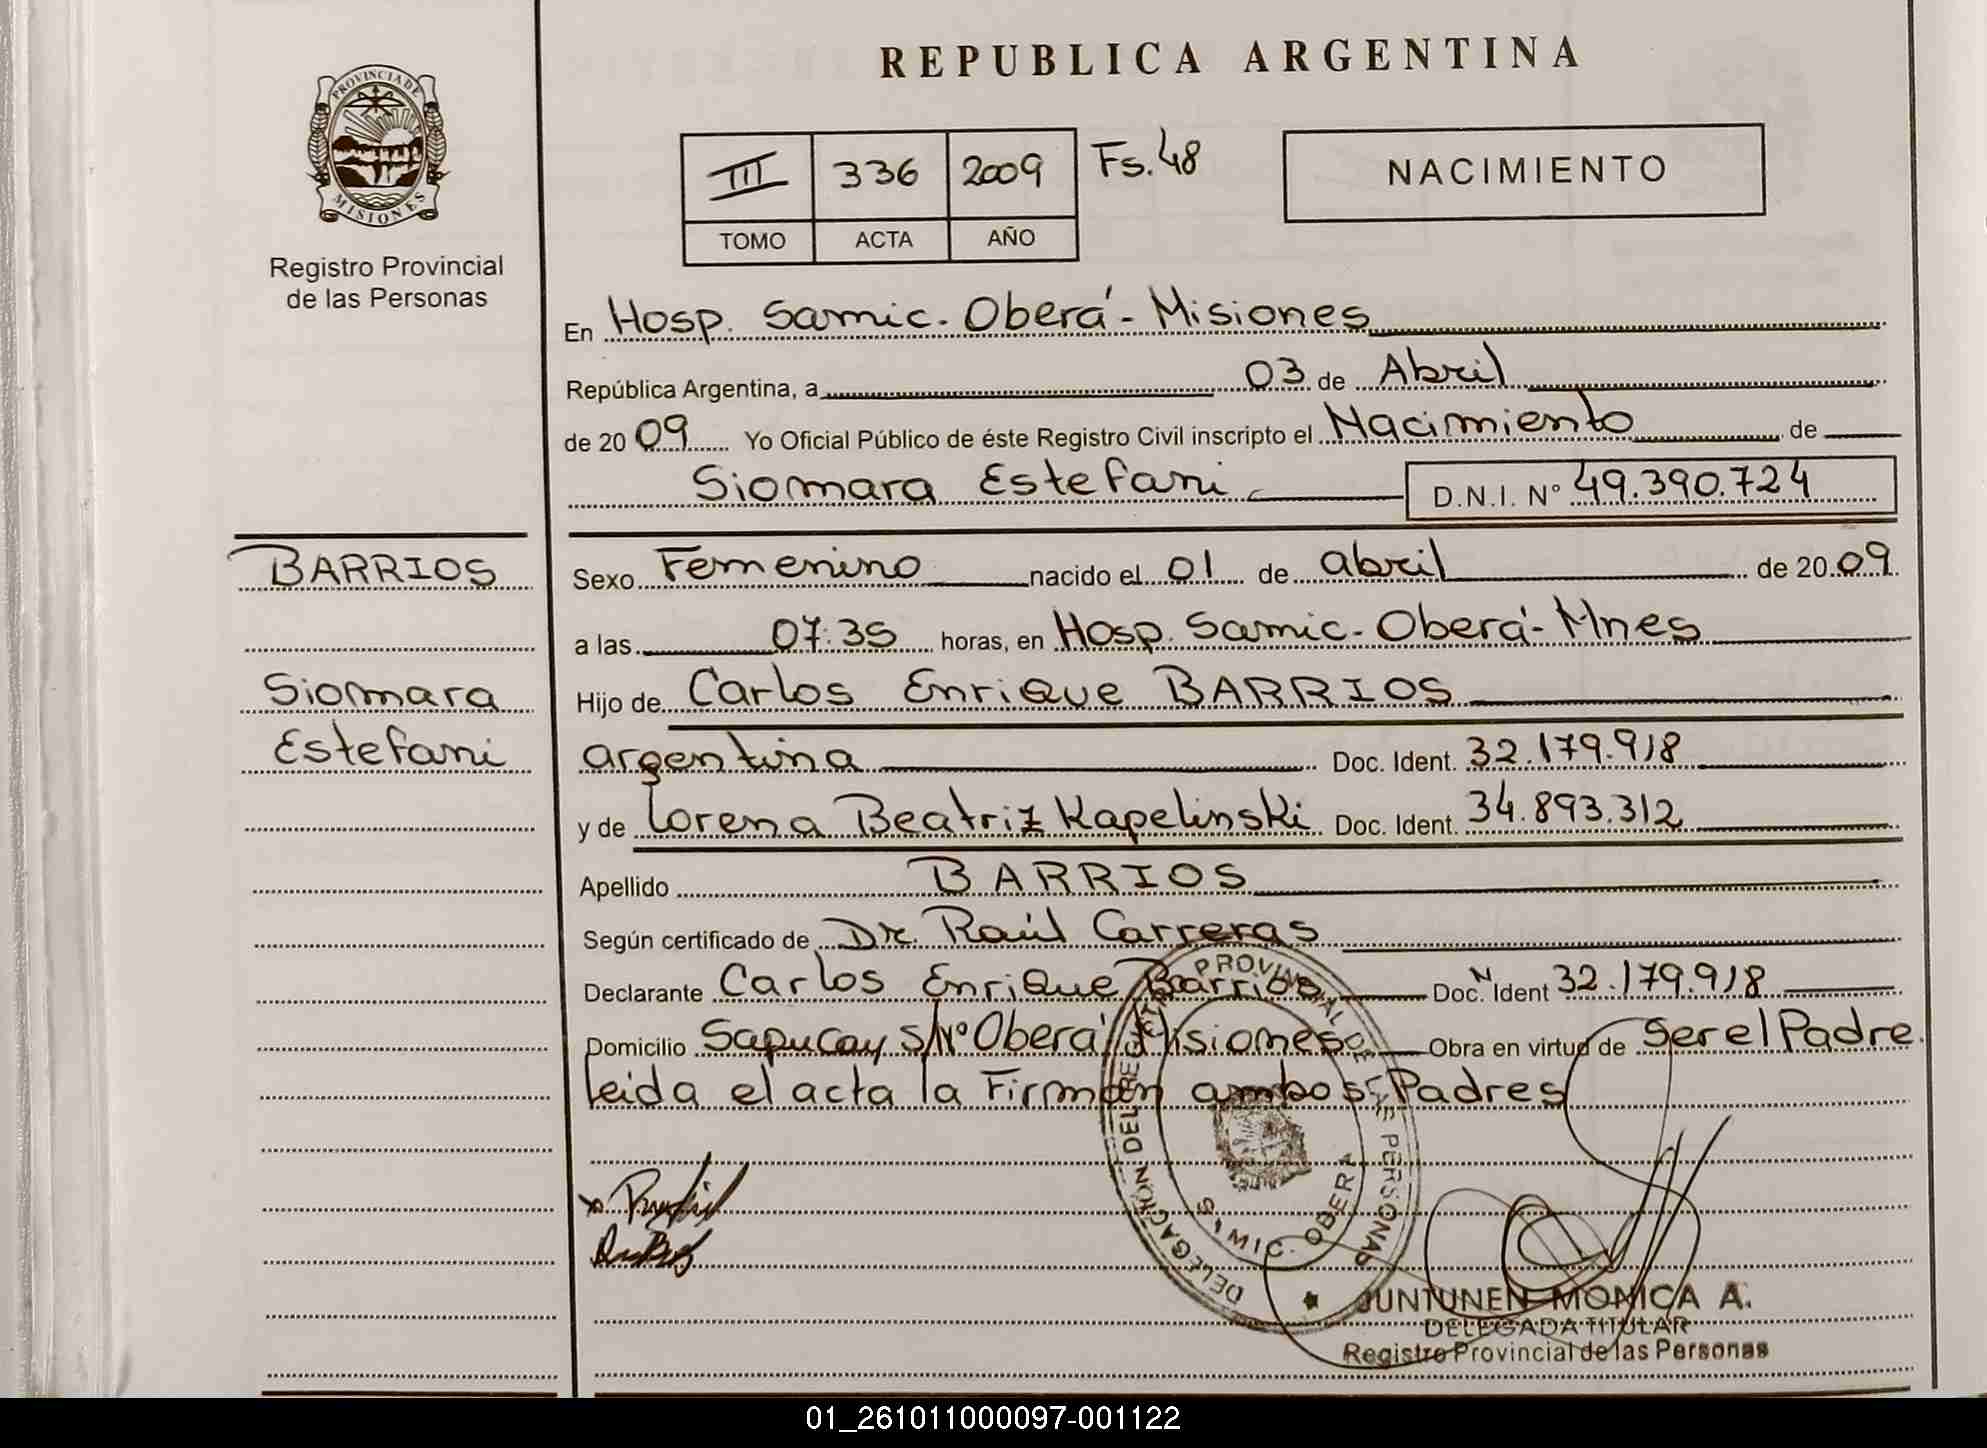 PROVINCIA DE
MISIONES
Registro Provincial
de las Personas
REPUBLICA ARGENTINA
III 336 2009 Fs. 48
TOMO ACTA AÑO
NACIMIENTO
En Hosp. Samic. Oberá - Misiones
República Argentina, a 03 de Abril
de 20 09 Yo Oficial Público de éste Registro Civil inscripto el Nacimiento de
Siomara Estefani D.N.I. N° 49.390.724
BARRIOS
Siomara
Estefani
Sexo Femenino nacido el 01 de abril de 20 09
a las 07:35 horas, en Hosp. Samic. Oberá - Mnes
Hijo de Carlos Enrique BARRIOS
argentina Doc. Ident. 32.179.918
y de Lorena Beatriz Kapelinski Doc. Ident. 34.893.312
Apellido BARRIOS
Según certificado de Dr. Raúl Carreras
Declarante Carlos Enrique Barrios Doc. N Ident 32.179.918
Domicilio Sapucay S/N° Oberá Misiones Obra en virtud de Ser el Padre
leida el acta la Firman ambos Padres
DELEGACIÓN DEL REGISTRO PROVINCIAL DE LAS PERSONAS
SAMIC. OBERA
JUNTUNEN MONICA A.
DELEGADA TITULAR
Registro Provincial de las Personas
01_261011000097-001122